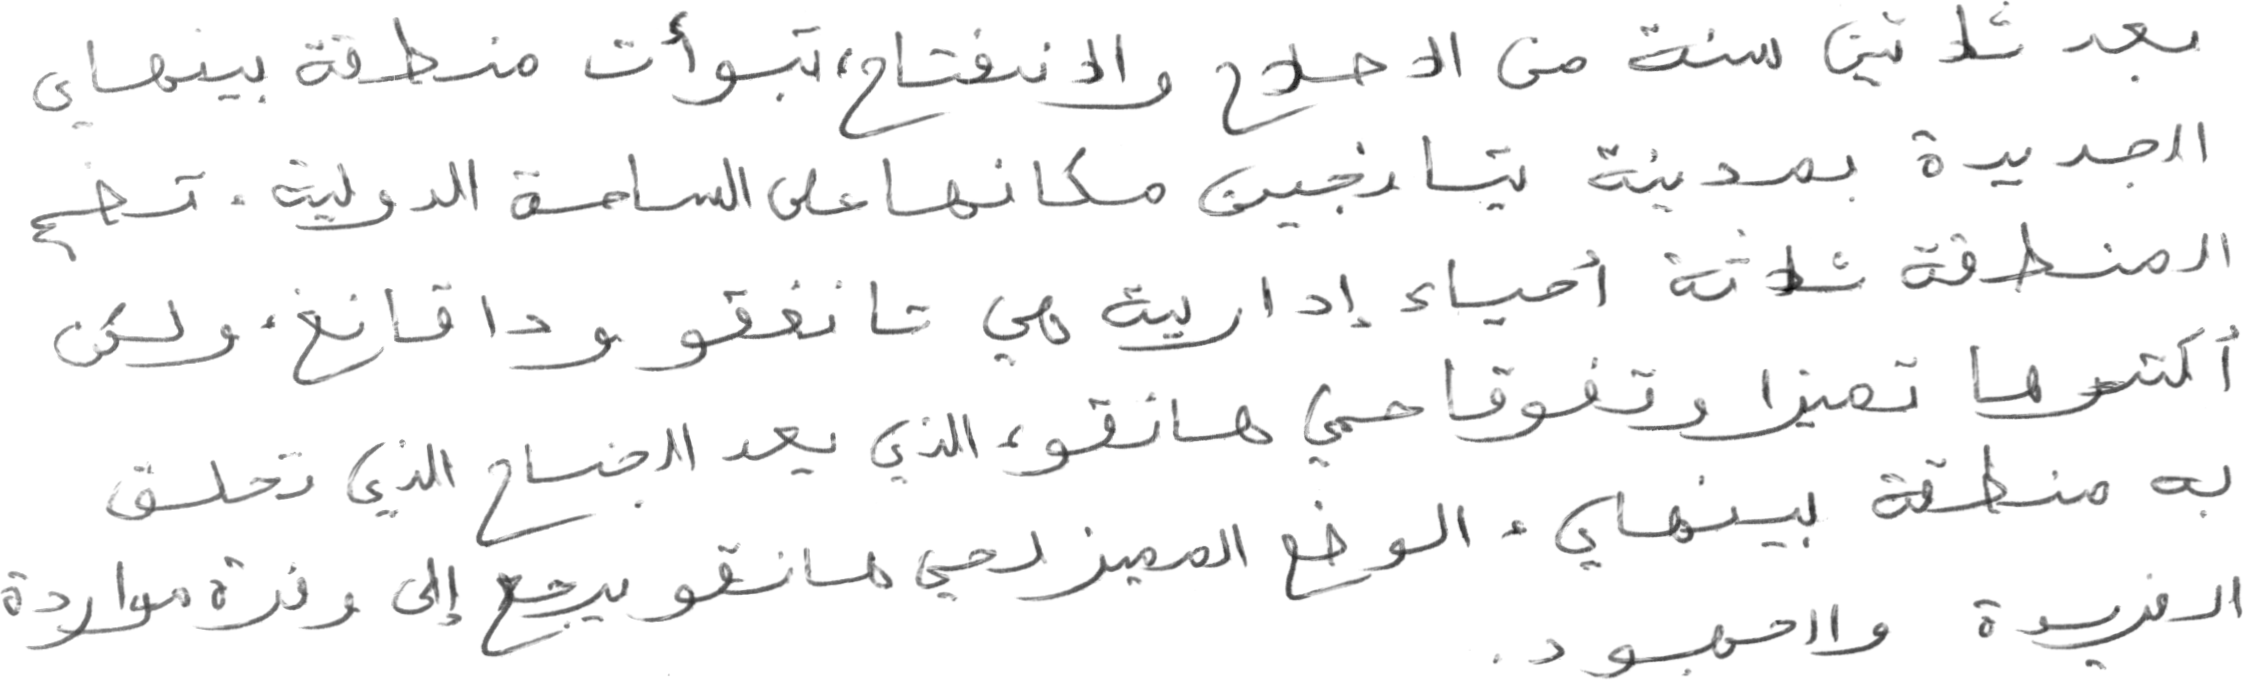 بعد ثلاثين سنة من الاصلاح والانفتاح، تبوأت منطقة بينهاي
الجديدة بمدينة تيانجين مكانها على الساحة الدولية. تضم
المنطقة ثلاثة أحياء إدارية هي تانغقو وداقانغ، ولكن
أكثرها تميزا وتفوقا حي هانقو، الذي يعد الجناح الذي تحلق
به منطقة بينهاي. الوضع المميز لحي هانقو يرجع إلى وفرة مواردة
الفريدة والجهود.